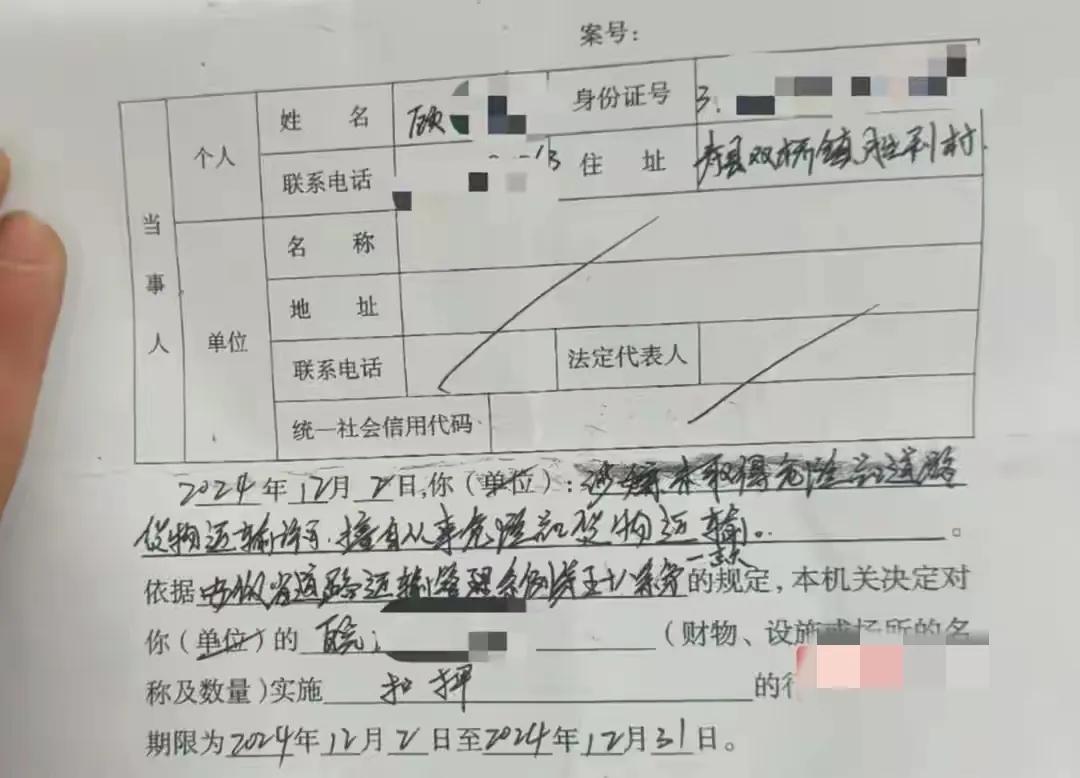 案号：
当事人
个人
姓 名 顾
身份证号 3.
联系电话 13
住 址 寿县双桥镇胜利村.
单位
名 称
地 址
联系电话
法定代表人
统一社会信用代码
2024年12月2日,你（单位）：涉嫌未取得危险品道路
货物运输许可,擅自从事危险品货物运输。
依据安徽省道路运输管理条例第五十八条第一款的规定，本机关决定对
你（单位）的 皖
（财物、设施或场所的名
称及数量）实施 扣押 的行
期限为2024年12月2日至2024年12月31日。